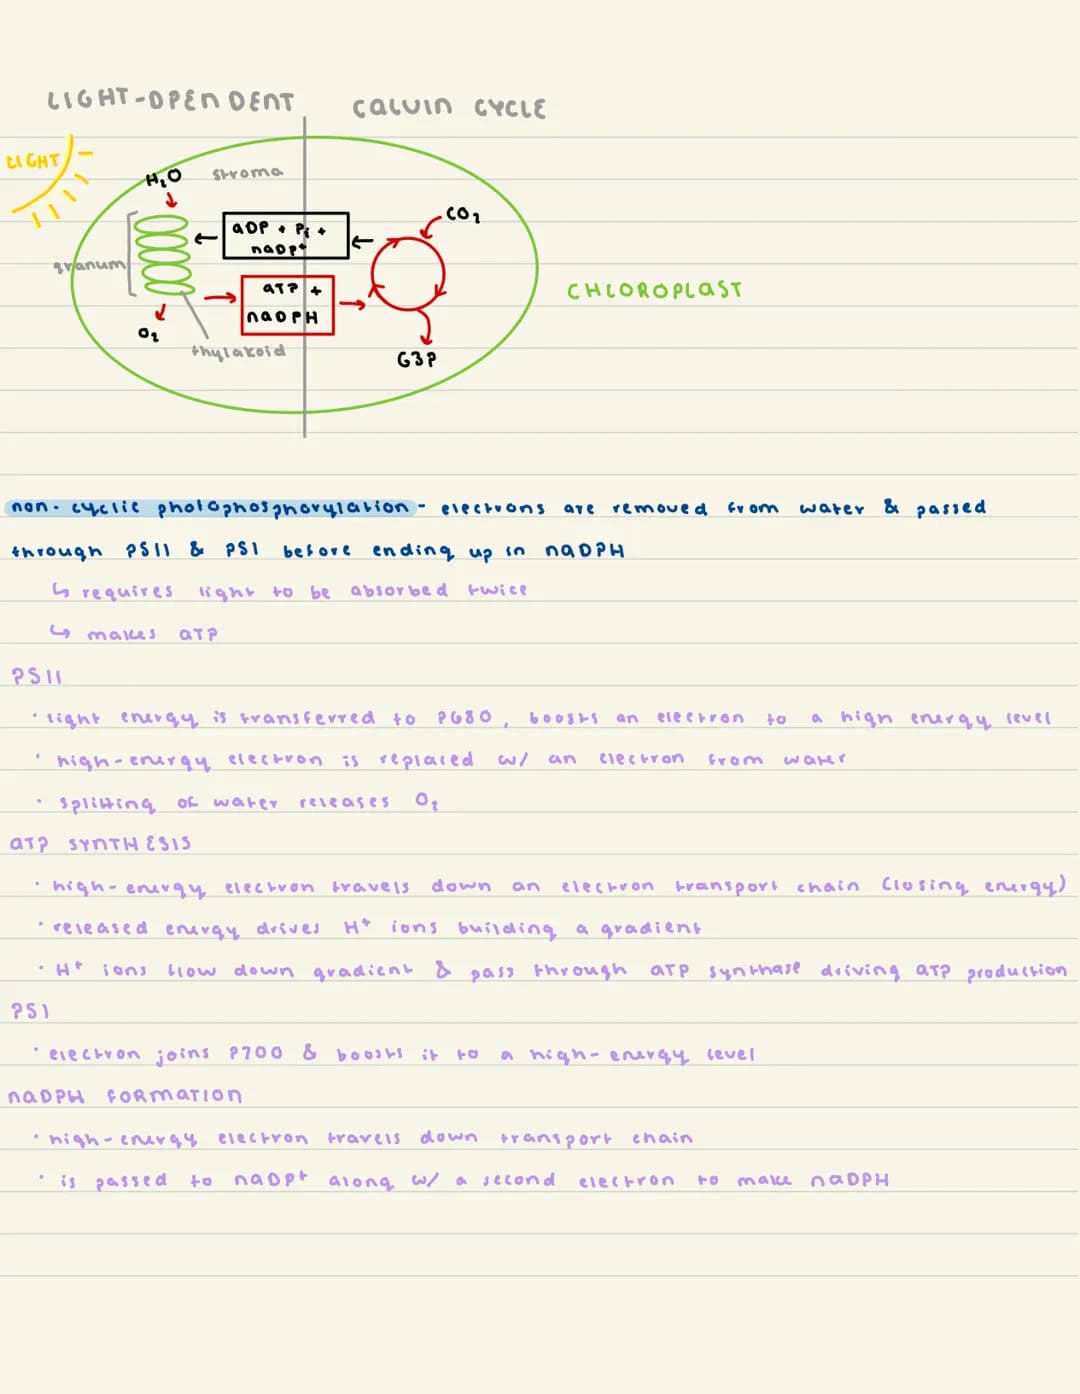 LIGHT-DPENDENT CALVIN CYCLE
LIGHT
H₂O stroma
CO₂
ADP + Pi +
NADP+
granum
ATP +
NADPH
CHLOROPLAST
O₂
thylakoid
G3P
non-cyclic photophosphorylation - electrons are removed from water & passed
through PSII & PSI before ending up in NADPH
↳ requires light to be absorbed twice
↳ makes ATP
PSII
· light energy is transferred to P680, boosts an electron to a high energy level
· high-energy electron is replaced w/ an electron from water
· splitting of water releases O₂
ATP SYNTHESIS
· high-energy electron travels down an electron transport chain (losing energy)
· released energy drives H+ ions building a gradient
· H+ ions flow down gradient & pass through ATP synthase driving ATP production
PSI
· electron joins P700 & boosts it to a high-energy level
NADPH FORMATION
· high-energy electron travels down transport chain
· is passed to NADP+ along w/ a second electron to make NADPH